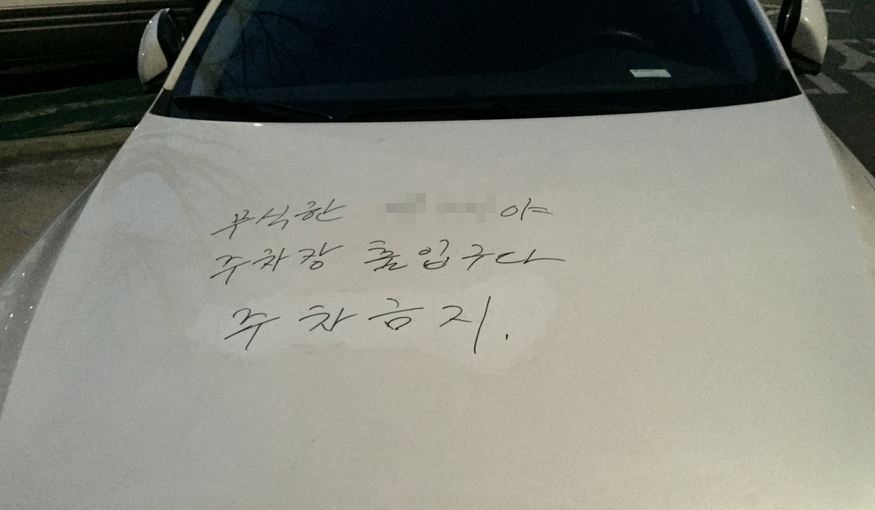 무식한 야
주차장 출입구다
주차금지.